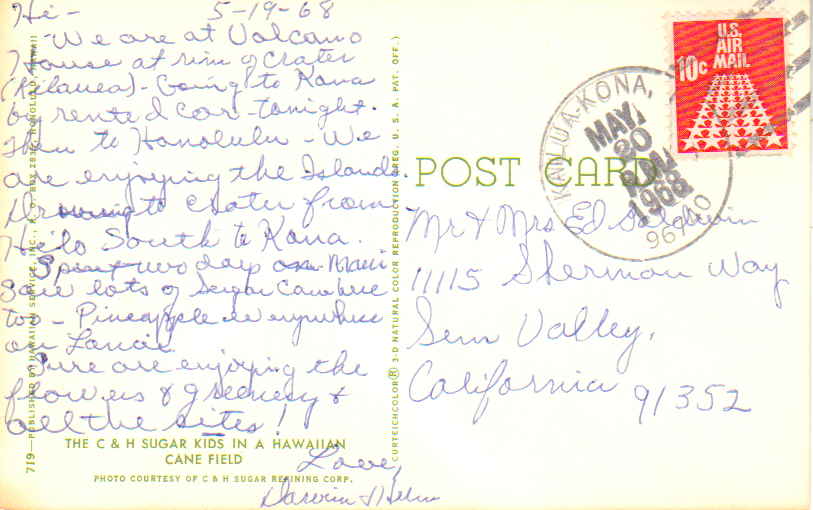 Hi - 5-19-68
We are at Volcano
House at rim of Crater
(Kilauea) - Going to Kona
by rented car - tonight.
Then to Honolulu - We
are enjoying the Islands.
to Crater from
Hilo South to Kona.
Spent two days on Maui
Saw lots of Sugar Cane here
too - Pineapple everywhere
on Lanai.
Sure are enjoying the
flowers & greenery &
all the sites!
Love,
Darwin & Helen
THE C & H SUGAR KIDS IN A HAWAIIAN
CANE FIELD
PHOTO COURTESY OF C & H SUGAR REFINING CORP.
719—PUBLISHED BY HAWAIIAN SERVICE, INC., P. O. BOX HONOLULU, HAWAII
CURTEICHCOLOR® 3-D NATURAL COLOR REPRODUCTION (REG. U. S. A. PAT. OFF.)
POST CARD
U.S.
AIR
MAIL
10c
KAILUA-KONA,
MAY
20
PM
1968
96740
Mr & Mrs Ed
11115 Sherman Way
Sun Valley,
California 91352